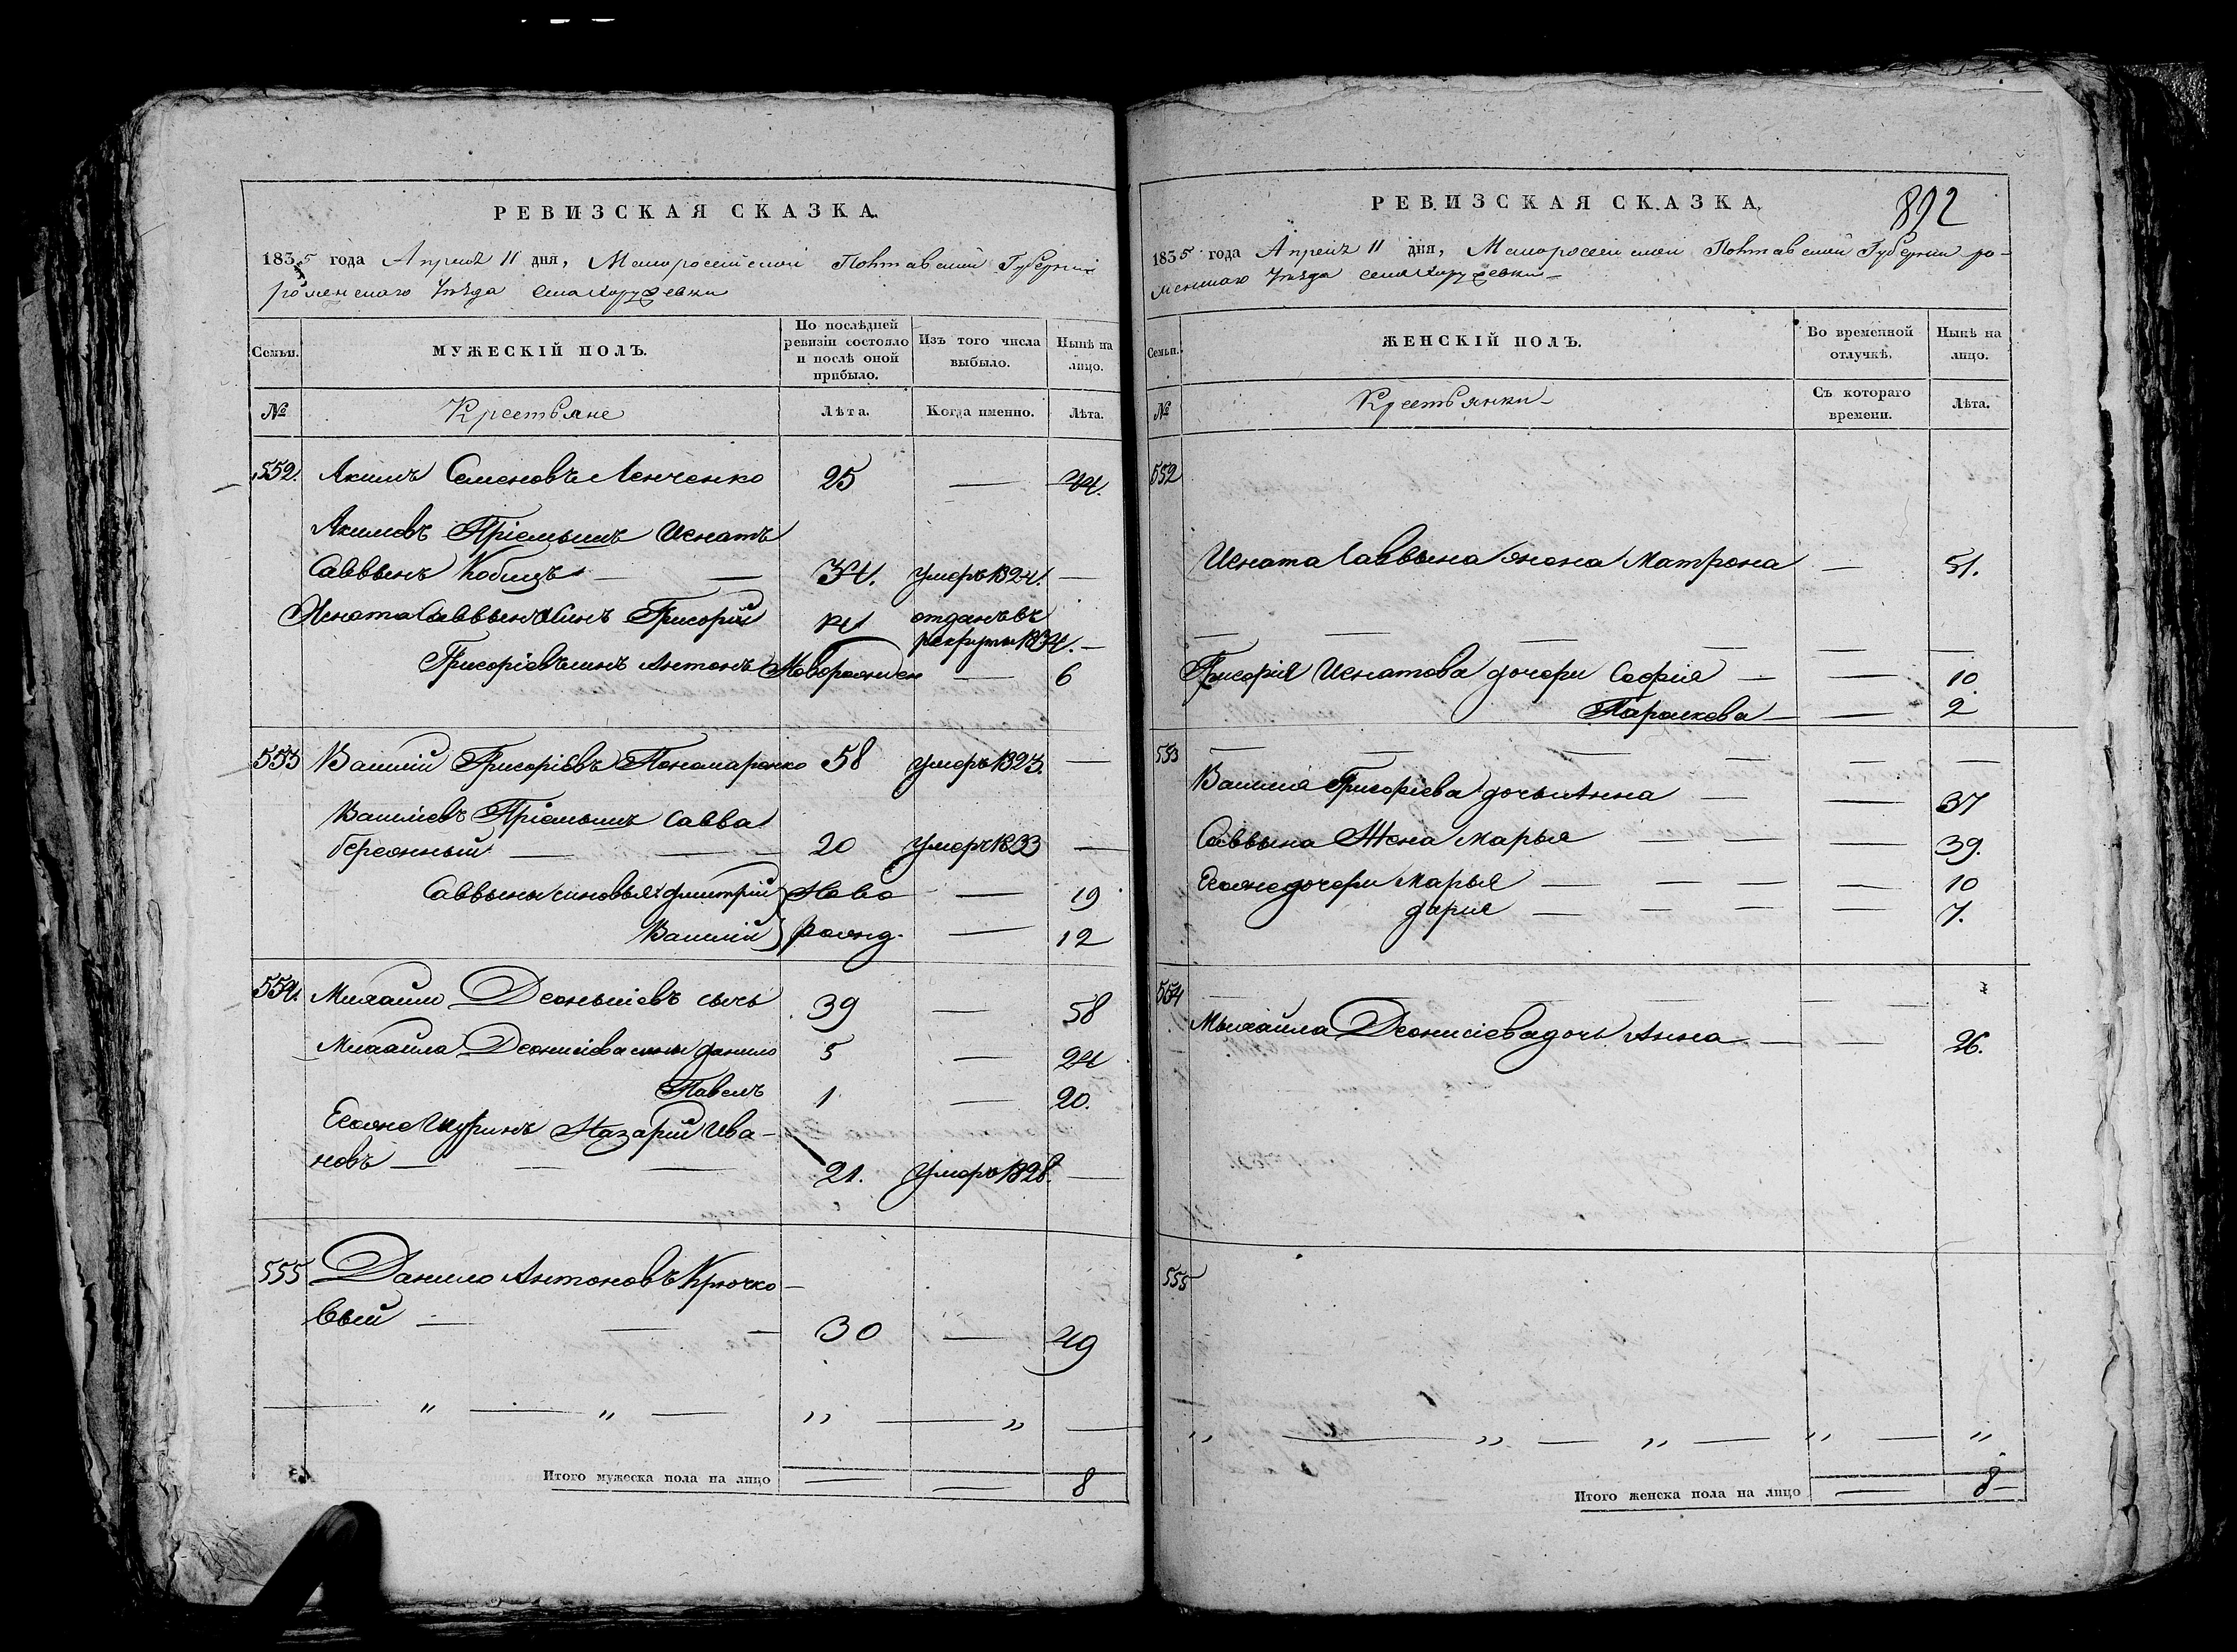 РЕВИЗСКАЯ СКАЗКА.
1835 года Апреля 11 дня, Малороссійской Полтавской Губерніи
роменскаго Уѣзда села Хоружевки
Семьи.
МУЖЕСКІЙ ПОЛЪ.
По послѣдней ревизіи состояло и послѣ оной прибыло.
Изъ того числа выбыло.
Нынѣ на лицо.
№
Крестьяне
Лѣта.
Когда именно.
Лѣта.
552. Акимъ Семеновъ Ленченко 25 — 44.
Акимовъ Пріемышъ Игнатъ
Саввынъ Кобицъ — — 34. умеръ 1824. —
Игната Саввына Синъ Григорій 14 отданъ въ
рекруты 1834. —
Григоріевъ синъ Антонъ Новорожден — 6
553 Василій Григоріевъ Пономаренко 58 умеръ 1823. —
Василіевъ Пріемышъ Савва
бережный — — 20 умеръ 1833 —
Саввыны синовья: дмитрій } Ново — 19
Василій } рожд. — 12
554. Михайло Деонысіевъ сычъ 39 — 58
Михайла Деонисіева сыны данило 5 — 24
Павелъ 1 — 20.
Егоже Шуринъ Назарій Ива-
новъ — — — 21. умеръ 1828. —
555 Данило Антоновъ Крючко-
вый — — — 30 — 49
— „ — „ — „ — „ —
Итого мужеска пола на лицо — — 8
РЕВИЗСКАЯ СКАЗКА,
892
1835 года Апреля 11 дня, Малороссійской Полтавской Губерніи ро-
менскаго Уѣзда села Хоружевки —
Семьи.
ЖЕНСКІЙ ПОЛЪ.
Во временной отлучкѣ.
Нынѣ на лицо.
№
Крестьянки
Съ котораго времени.
Лѣта.
552
Игната Саввына жена Матрона — 51.
— — — — — —
Григорія Игнатова дочери Софія — — 10.
Параскева — — 2
553 — — — — — —
Василія Григорієва дочь Анна — — 37
Саввына Жена Марья — — — — 39.
Егоже дочери Марья — — — — 10
дарія — — — — 7.
554 — — — — —
Мыхайла Деонисіева дочь Анна — — 26.
555
„ — „ — „ — „ — „
Итого женска пола на лицо — 8